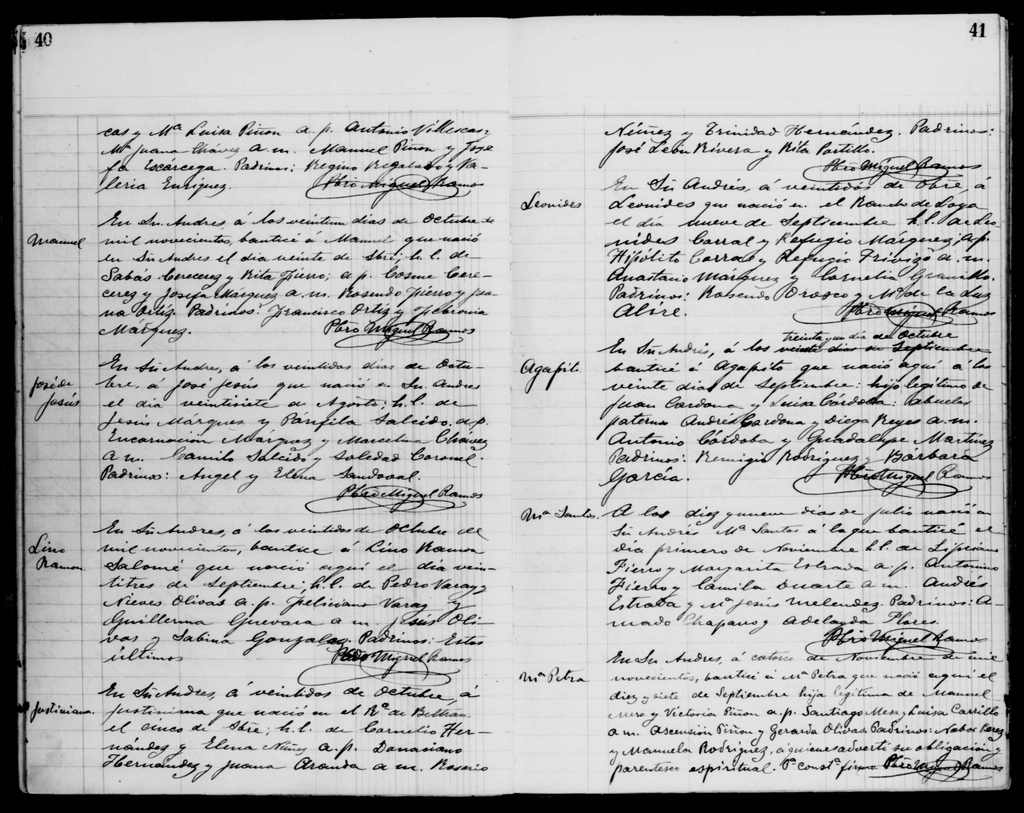 40
cas y Mª Luisa Piñon a.p. Antonio Villescas;
Mª Juana Chávez a.m. Manuel Piñon y Jose
fa Escárcega. Padrinos: Regino Regalado y Va-
leria Enriquez. Pbro Miguel Ramos
Manuel
En Sn. Andres, á los veintiun dias de Octubre de
mil novecientos, bauticé á Manuel que nació
en Sn Andres el dia veinte de Sbre; h. l. de
Sabás Cereceres y Rita Fierro; a.p. Cosme Cere-
ceres y Josefa Márquez a.m. Rosendo Fierro y Jua
na Ortiz. Padrinos: Francisco Ortiz y
Márquez. Pbro Miguel Ramos
José de
Jesús
En Sn Andres, á los veintidos dias de Octu-
bre, á José Jesús que nació en Sn. Andres
el dia veintisiete de Agosto; h. l. de
Jesús Márques y Pánfila Salcido, a.p.
Encarnación Márquez y Marcelina Chávez
a.m. Camilo Salcido y Soledad Coronel.
Padrinos: Angel y Elena Sandoval.
Pbro Miguel Ramos
Lino
Ramon
En Sn Andres, á los veintidos de Octubre de
mil novecientos, bautice á Lino Ramon
Salomé que nació aquí el dia vein-
titres de Septiembre; h. l. de Pedro Varay
Nieves Olivas a.p. Feliciano Varay y
Guillerma Guevara a.m. Jesús Oli-
vas y Sabina Gonzalez. Padrinos: Estos
últimos Pbro Miguel Ramos
Justiniana.
En Sn Andres, á veintidos de Octubre, á
Justiniana que nació en el Rº de Beltran
el cinco de Sbre; h. l. de Cornelio Her-
nández y Elena Núñez a.p. Damasiano
Hernández y Juana Aranda a.m. Rosario
41
Núñez y Trinidad Hernández. Padrinos:
José León Rivera y Rita Portillo.
Pbro Miguel Ramos
Leonides
En Sn Andrés, á veintidos de Obre, á
Leonides que nació en el Rancho de Loya
el dia nueve de Septiembre h. l. de Leo-
nides Corral y Refugio Márquez; a.p.
Hipólito Corral y Refugio Trevizo a.m.
Anastasio Márquez y Cornelia Granillo.
Padrinos: Rosendo Orozco y Mª de la Luz
Pbro Miguel Ramos
treinta un dia de Octubre
Agapito
En Sn Andrés, á los veinte dias de Septiembre
bauticé á Agapito que nació aquí a los
veinte dias de Septiembre: hijo legítimo de
Juan Cardona y Luisa Córdoba: Abuelos
paternos Andrés Cardona y Diega Reyes a.m.
Antonio Córdoba y Guadalupe Martínez
Padrinos: Remigio Rodríguez y Bárbara
García. Pbro Miguel Ramos
Mª Santos.
A los diez y nueve dias de julio nació en
Sn Andrés Mª Santos á la que bauticé el
dia primero de Noviembre h. l. de
Fierro y Margarita Estrada a.p. Antonio
Fierro y Camila Duarte a.m. Andrés
Estrada y Mª Jesús Melendez. Padrinos: A-
mado Chaparro y Adelayda Flores.
Pbro Miguel Ramos
Mª Petra
En Sn Andres, á catorce de Noviembre de mil
novecientos, bauticé á Mª Petra que nació aquí el
diez y siete de Septiembre hija legítima de Manuel
y Victoria Piñon a.p. Santiago y Luisa Carrillo
a.m. Asensión Piñon y Gerarda Olivas Padrinos:
y Manuela Rodriguez, á quienes advertí su obligacion y
parentesco espiritual. Pª constª firmo Pbro Miguel Ramos